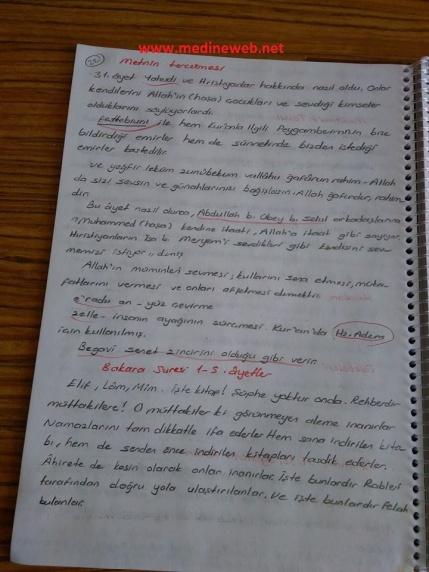 www.medineweb.net
Metnin tercümesi
31. âyet Yahudi ve Hristiyanlar hakkında nazil oldu. Onlar
kendilerini Allah'ın (haşa) çocukları ve sevdiği kimseler
olduklarını söylüyorlardı.
Fettebiuni ile hem Kur'anla ilgili Peygamberimizin bize
bildirdiği emirler hem de sünnetinde bizden istediği
emirler kastedilir.
Ve yeğfir lekum zunûbekum vallâhu gafûrun rahim - Allah
da sizi sevsin ve günahlarınızı bağışlasın. Allah gafurdur, rahim
dir.
Bu âyet nazil olunca, Abdullah b. Übey b. Selül arkadaşlarına
"Muhammed (haşa) kendine itaati, Allah'a itaat gibi sayıyor,
Hıristiyanların İsa b. Meryem'i sevdikleri gibi kendisini sev
memizi istiyor", demiş
Allah'ın müminleri sevmesi; kullarını sena etmesi, müka-
fatlarını vermesi ve onları affetmesi demektir.
e'radu an - yüz çevirme
zelle - insanın ayağının sürcmesi. Kur'an'da Hz. Adem
için kullanılmış.
Begavî senet zincirini olduğu gibi verir.
Bakara Suresi 1-5. âyetler
Elif, Lâm, Mim. İşte kitap! Şüphe yoktur onda. Rehberdir
müttakilere! O müttakiler ki görünmeyen aleme inanırlar
Namazlarını tam dikkatle ifa ederler Hem sana indirilen kita
bı, hem de senden önce indirilen kitapları tasdik ederler.
Âhirete de kesin olarak onlar inanırlar. İşte bunlardır Rableri
tarafından doğru yola ulaştırılanlar. Ve işte bunlardır felah
bulanlar.